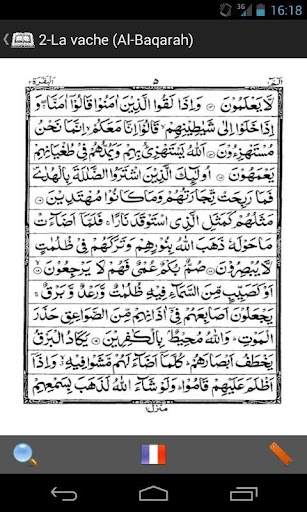 16:18
2-La vache (Al-Baqarah)
الٓمّٓ ۱ ۵ البقرة ۲
لَا يَعْلَمُوْنَ ۝ وَاِذَا لَقُوا الَّذِيْنَ اٰمَنُوْا قَالُوْٓا اٰمَنَّا ۖ وَ
اِذَا خَلَوْا اِلٰى شَيٰطِيْنِهِمْ ۙ قَالُوْٓا اِنَّا مَعَكُمْ ۙ اِنَّمَا نَحْنُ
مُسْتَهْزِءُوْنَ ۝ اَللّٰهُ يَسْتَهْزِئُ بِهِمْ وَيَمُدُّهُمْ فِيْ طُغْيَانِهِمْ
يَعْمَهُوْنَ ۝ اُولٰٓئِكَ الَّذِيْنَ اشْتَرَوُا الضَّلٰلَةَ بِالْهُدٰى ۪
فَمَا رَبِحَتْ تِّجَارَتُهُمْ وَمَا كَانُوْا مُهْتَدِيْنَ ۝
مَثَلُهُمْ كَمَثَلِ الَّذِى اسْتَوْقَدَ نَارًا ۚ فَلَمَّآ اَضَآءَتْ
مَا حَوْلَهٗ ذَهَبَ اللّٰهُ بِنُوْرِهِمْ وَتَرَكَهُمْ فِيْ ظُلُمٰتٍ
لَّا يُبْصِرُوْنَ ۝ صُمٌّۢ بُكْمٌ عُمْيٌ فَهُمْ لَا يَرْجِعُوْنَ ۝
اَوْ كَصَيِّبٍ مِّنَ السَّمَآءِ فِيْهِ ظُلُمٰتٌ وَّرَعْدٌ وَّبَرْقٌ ۚ
يَجْعَلُوْنَ اَصَابِعَهُمْ فِيْٓ اٰذَانِهِمْ مِّنَ الصَّوَاعِقِ حَذَرَ
الْمَوْتِ ؕ وَاللّٰهُ مُحِيْطٌۢ بِالْكٰفِرِيْنَ ۝ يَكَادُ الْبَرْقُ
يَخْطَفُ اَبْصَارَهُمْ ؕ كُلَّمَآ اَضَآءَ لَهُمْ مَّشَوْا فِيْهِ ۙ وَاِذَآ
اَظْلَمَ عَلَيْهِمْ قَامُوْا ؕ وَلَوْ شَآءَ اللّٰهُ لَذَهَبَ بِسَمْعِهِمْ
منزل